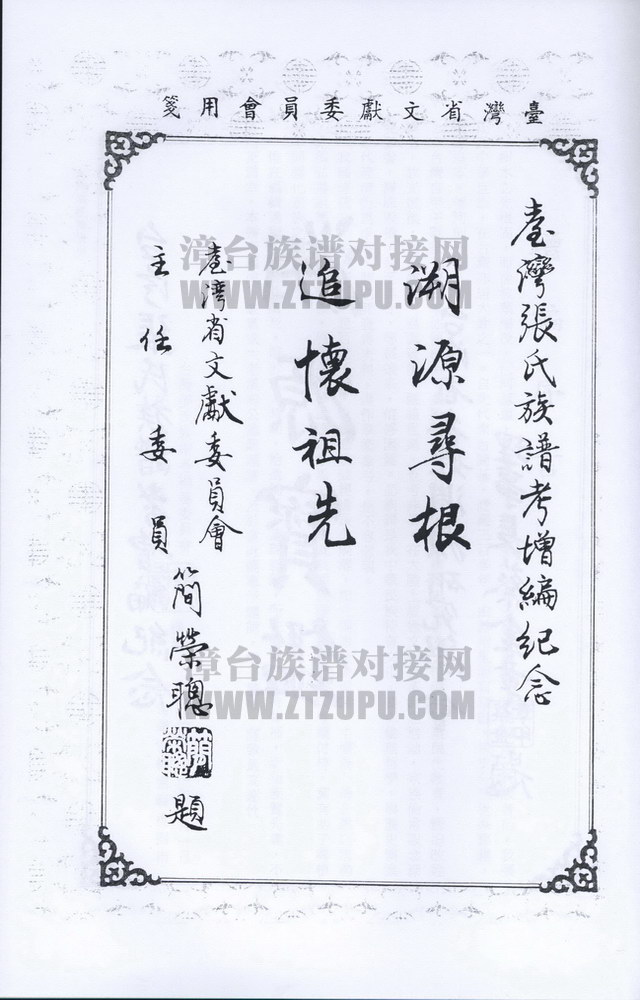 臺灣省文獻委員會用箋
臺灣張氏族譜考增編紀念
溯源尋根
追懷祖先
臺灣省文獻委員會
主任委員
簡榮聰
簡榮聰
題
漳台族谱对接网
WWW.ZTZUPU.COM
漳台族谱对接网
WWW.ZTZUPU.COM